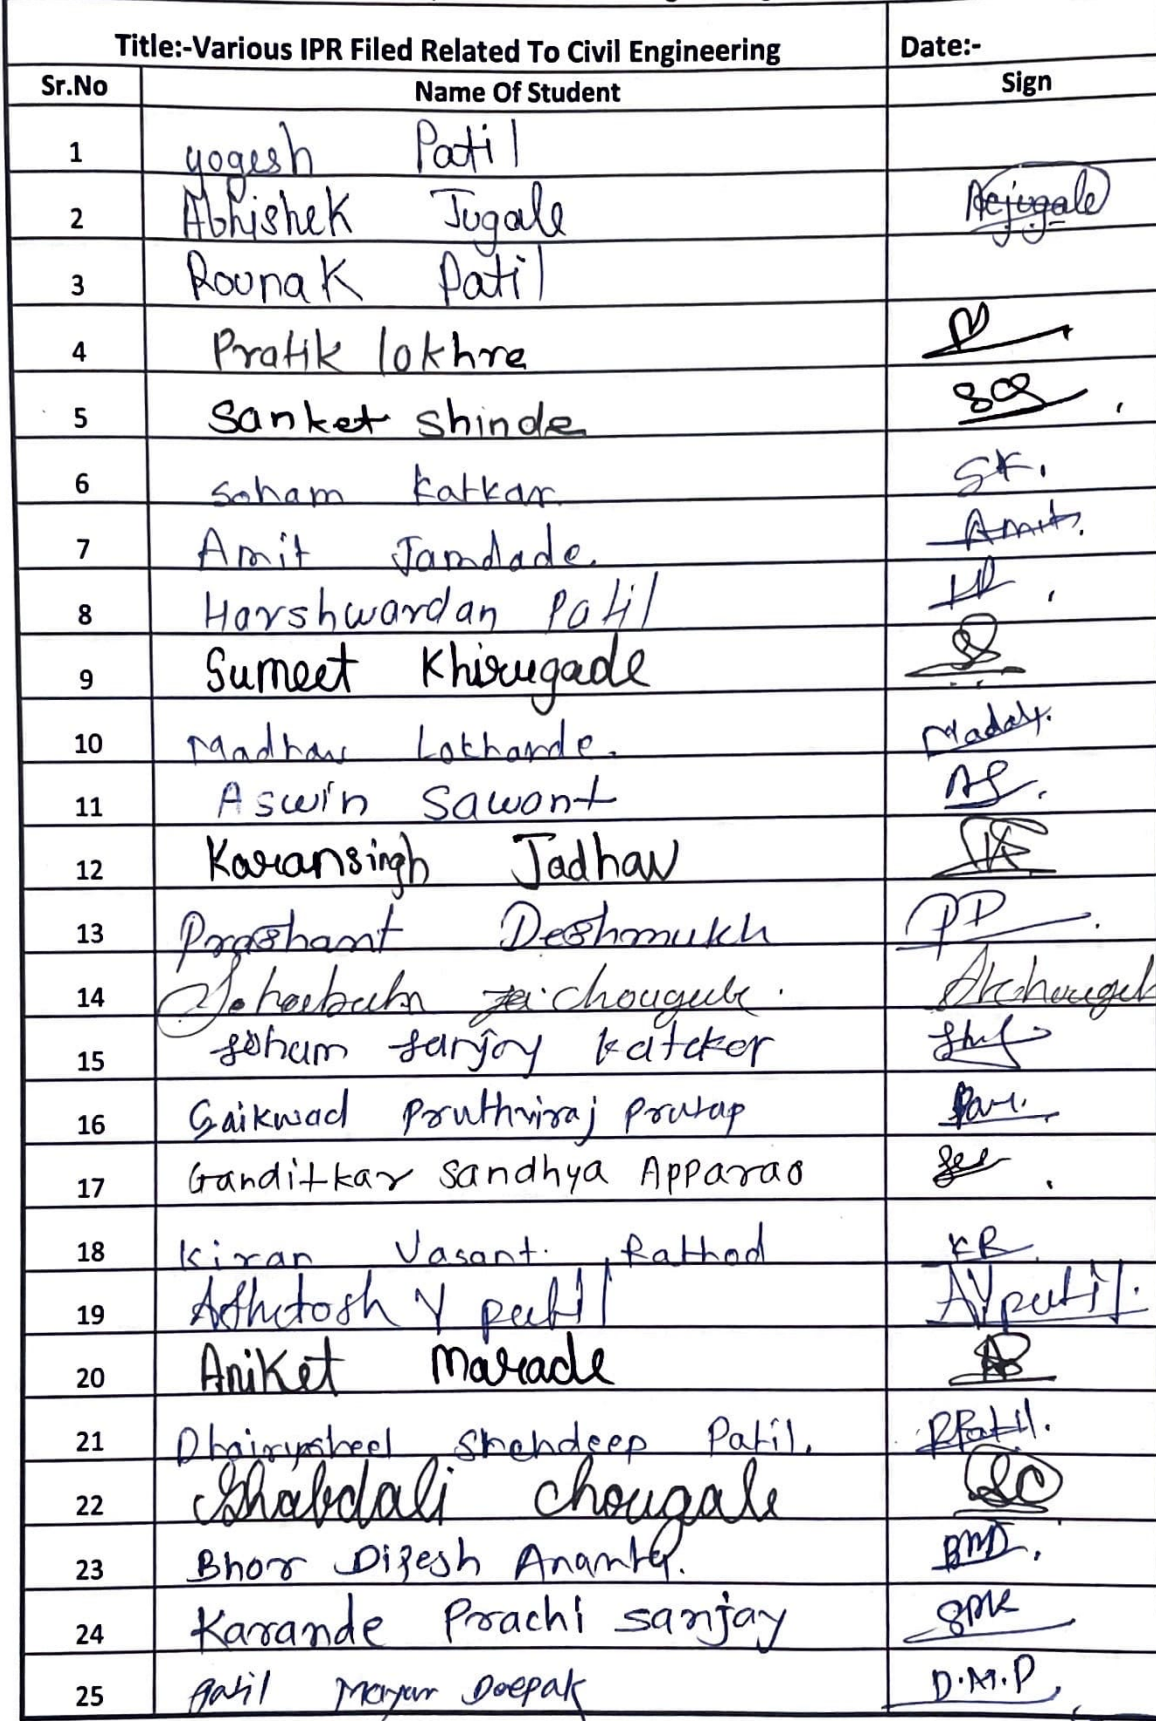 Title:-Various IPR Filed Related To Civil Engineering Date:-
Sr.No Name Of Student Sign
1 yogesh Patil
2 Abhishek Jugale Aejugale
3 Rounak Patil
4 Pratik lokhre
5 Sanket Shinde
6 Soham Katkar SK.
7 Amit Jamdade. Amit.
8 Harshwardan Patil
9 Sumeet Khirugade
10 Madhav Lokhande.
11 Aswin Sawant AS.
12 Karansingh Jadhav
13 Prashant Deshmukh PD
14 chougule.
15 soham sanjay katcker
16 Gaikwad Pruthviraj Pratap
17 Ganditkar Sandhya Apparao
18 Kiran Vasant. Rathod KR
19 Ashutosh Y patil AYpatil.
20 Aniket Marade
21 Dhairysheel Shahdeep Patil. DPatil.
22 Shabdali Chougale SC
23 Bhor Digesh Ananta. BMD.
24 Karande Prachi sanjay SPK
25 Patil Mayur Deepak D.M.P.